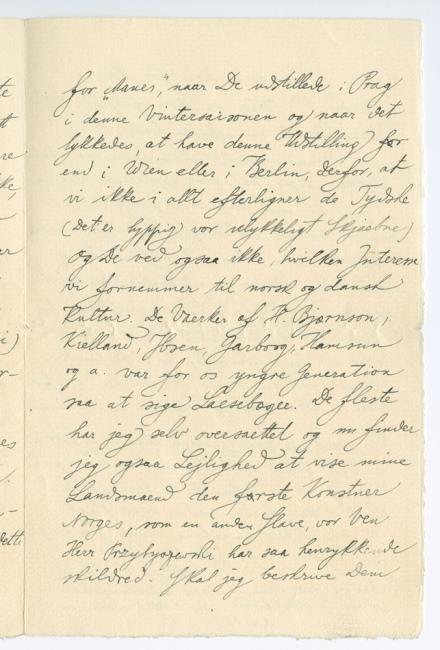 for „Manes“, naar De udstillede i Prag
i denne Vintersaisonen og naar det
lykkedes, at have denne Udstilling for
end i Wien eller i Berlin, derfor, at
vi ikke i allt efterligner de Tydske
(det er hyppig vor ulykkeligt Skjaebne)
og De ved ogsaa ikke, hvilken Interesse
vi fornemmer til norsk og dansk
Kultur. De Vaerker af H. Bjørnson,
Kielland, Ibsen, Garborg, Hamsun
og a. var for os yngre Generation
saa at sige Laesebøger. De fleste
har jeg selv oversaettet og nu finder
jeg ogsaa Lejlighed at vise mine
Landsmaend den første Konstner
Norges, som en anden Slave, vor Ven
Herr Przybyszewski har saa henrykkende
skildred. Skal jeg beskrive Dem